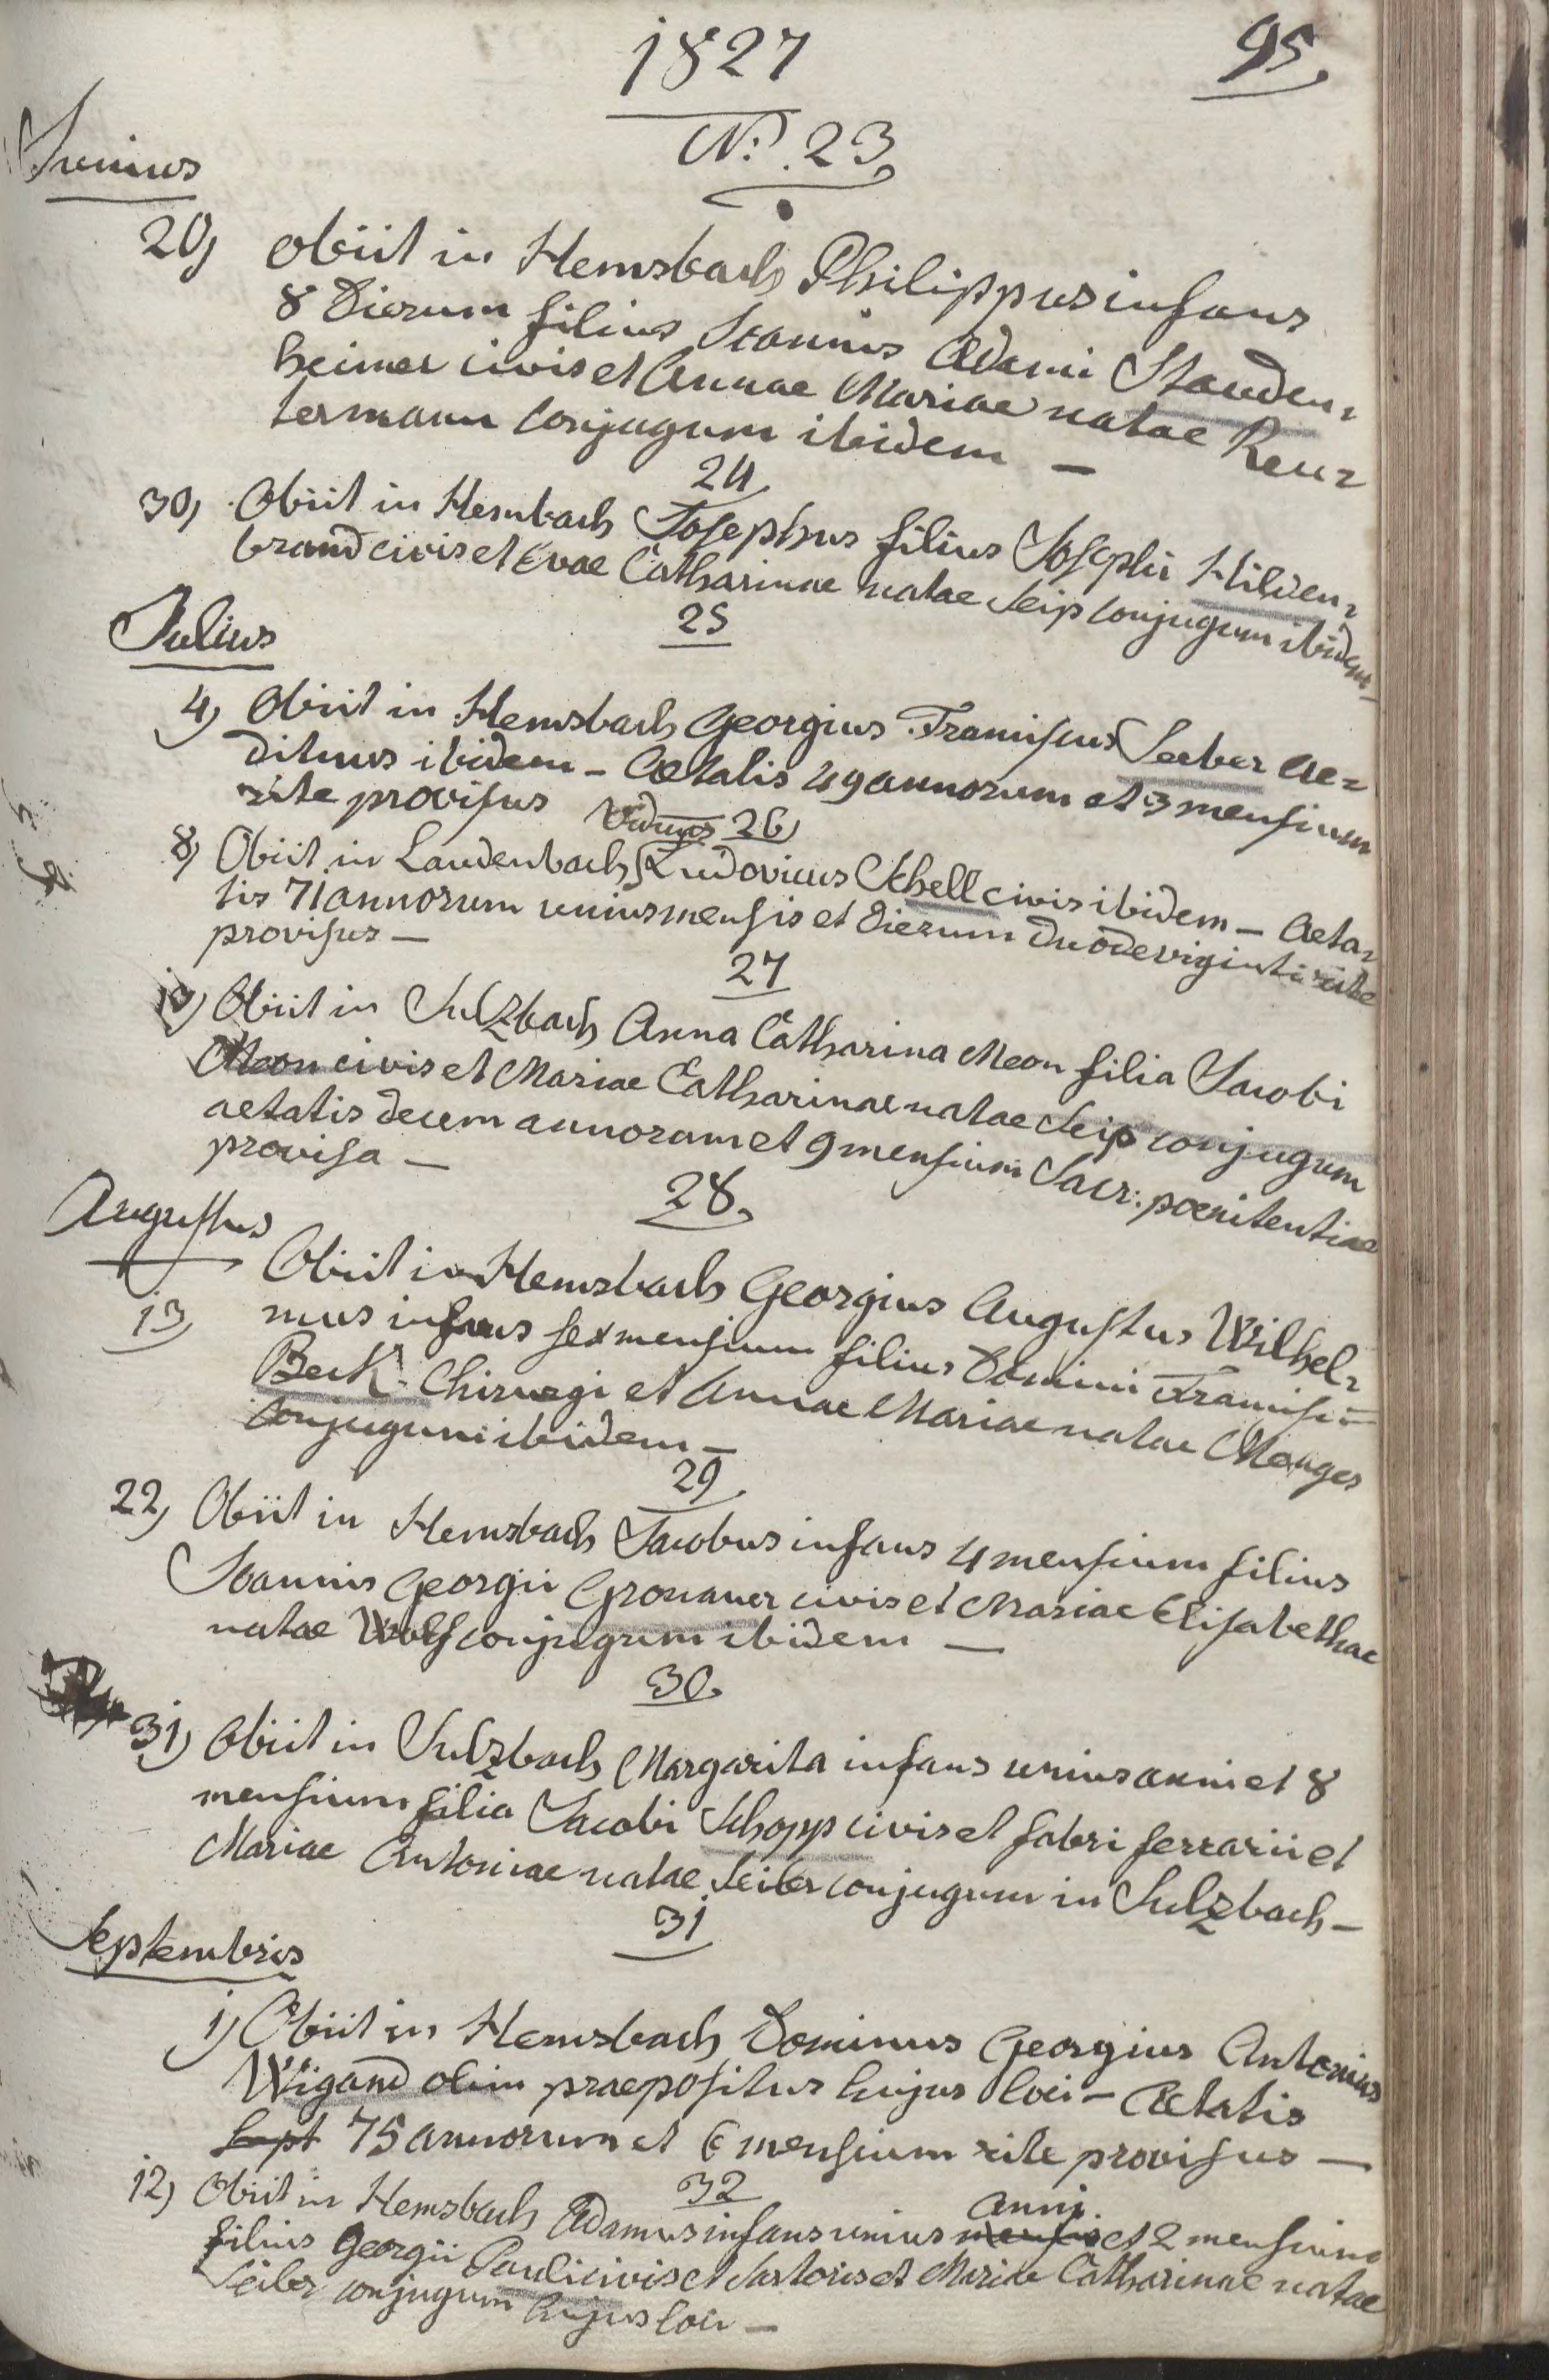 1827
95.
N: 23
Junius
20) Obiit in Hemsbach Philippus infans
8 Dierum filius Joannis Adami Stauden=
heimer civis et Annae Mariae natae Reu=
termann conjugum ibidem —
24
30) Obiit in Hemsbach Josephus filius Josephi Hilden=
brand civis et Evae Catharinae natae Seip conjugum ibidem —
25
Julius
4) Obiit in Hemsbach Georgius Franciscus Seeber Ae=
dituus ibidem – Aetatis 49 annorum et 3 mensium
rite provisus
Viduus 26)
8) Obiit in Laudenbach Ludovicus Schell civis ibidem – Aeta=
tis 71 annorum unius mensis et dierum duodeviginti rite
provisus —
27
Obiit in Sulzbach Anna Catharina Meon filia Jacobi
Meon civis et Mariae Catharinae natae Seip conjugum
aetatis decem annorum et 9 mensium Sacr: poenitentiae
provisa —
28.
Augustus
13) Obiit in Hemsbach Georgius Augustus Wilhel=
mus infans sex mensium filius Domini Francisci=
Beck Chirurgi et Annae Mariae natae Menges
conjugum ibidem —
29
22) Obiit in Hemsbach Jacobus infans 4 mensium filius
Joannis Georgii Gronauer civis et Mariae Elisabethae
natae Wolf conjugum ibidem —
30.
31) Obiit in Sulzbach Margarita infans unius anni et 8
mensium filia Jacobi Schopp civis et fabri ferrarii et
Mariae Antoniae natae Seiber conjugum in Sulzbach —
31
Septembris
1) Obiit in Hemsbach Dominus Georgius Antonius
Wigand olim praepositus hujus loci – Aetatis
Sept 75 annorum et 6 mensium rite provisus —
32
12) Obiit in Hemsbach Adamus infans unius mensis anni et 2 mensium
filius Georgii Pauli civis et Sartoris et Mariae Catharinae natae
Seiber conjugum hujus loci —